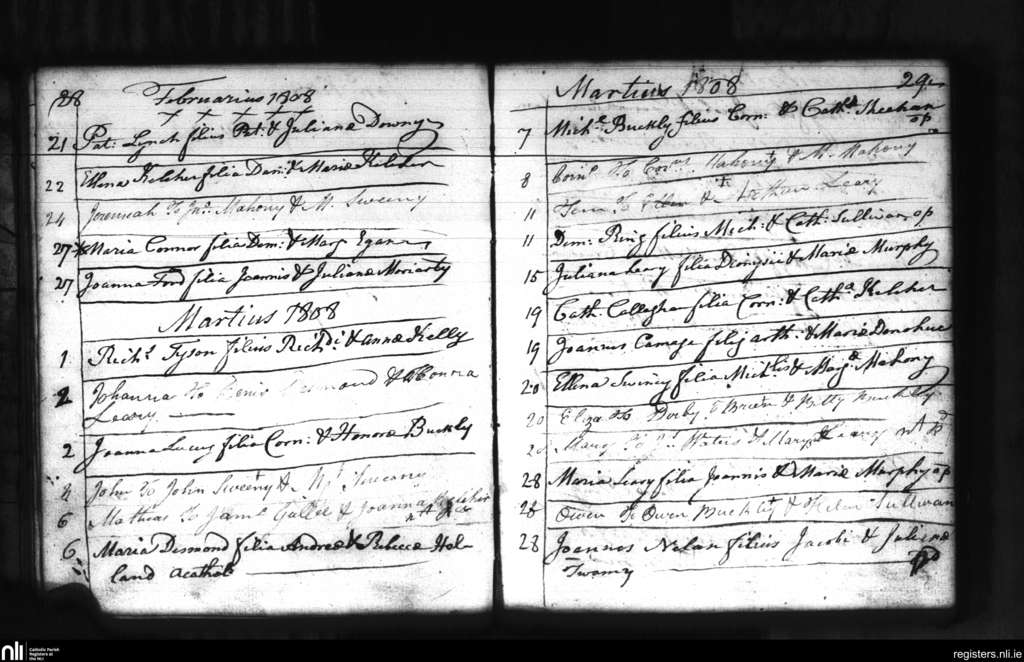 28 Februarius 1808
21 Pat: Lynch filius Pat: & Julianæ Downy
22 Ellena Keleher filia Dan: & Mariæ Keleher
24 Jeremiah To Jno. Mahony & M. Sweeny
27 Maria Connor filia Dem: & Marg Egan
27 Joanna Ford filia Joannis & Julianæ Moriarty
Martius 1808
1 Richd Tyson filius Richdi & Annæ Kelly
2 Johanna To Denis Desmond & Honora
Leary
2 Joanna Lucey filia Corn: & Honoræ Buckly
4 John To John Sweeny & Sweeny
6 Mathias To Jams & Joanna Keleher
6 Maria Desmond filia Andreæ & Rebeccæ Hol-
land acathol
Martius 1808 29
7 Michl Buckly filius Corn: & Cath: Sheehan
op
8 Corns To Corns Mahony & M. Mahony
11 To Leary
11 Dem: Ring filius Mich: & Cath: Sullivan op
15 Juliana Leary filia Dionysii & Mariæ Murphy
19 Cath Callaghan filia Corn: & Catha Keleher
19 Joannes filius arth: & Mariæ Donohue
20 Ellena Swiney filia Michlis & Marg: Mahony
20 Eliza To Derby O Brien & Kitty Buckly
Mary To & Mary Leary
28 Maria Leary filia Joannis & Mariæ Murphy op
28 Owen To Owen Buckly & Helen Sullivan
28 Joannes Nolan filius Jacobi & Julianæ
Twomy pd
nli Catholic Parish
Registers at
the NLI
registers.nli.ie